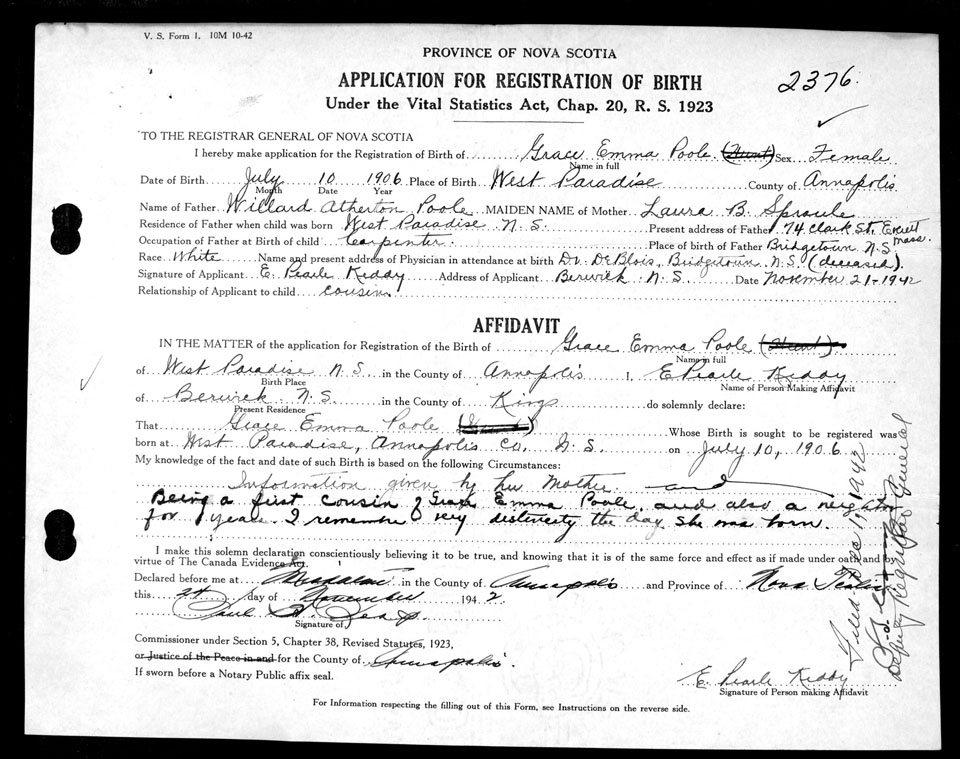 V. S. Form 1. 10M 10-42
PROVINCE OF NOVA SCOTIA
APPLICATION FOR REGISTRATION OF BIRTH
2376.
Under the Vital Statistics Act, Chap. 20, R. S. 1923
TO THE REGISTRAR GENERAL OF NOVA SCOTIA
I hereby make application for the Registration of Birth of Grace Emma Poole (Hunt) Sex Female
Name in full
Date of Birth July 10 1906 Place of Birth West Paradise County of Annapolis
Month Date Year
Name of Father Willard Atherton Poole MAIDEN NAME of Mother Laura B. Sproule
Residence of Father when child was born West Paradise N. S. Present address of Father 74 Clark St, Everett Mass.
Occupation of Father at Birth of child Carpenter. Place of birth of Father Bridgetown N. S.
Race White Name and present address of Physician in attendance at birth Dr. DeBlois, Bridgetown N. S. (deceased).
Signature of Applicant E. Pearle Kiddy Address of Applicant Berwick N. S. Date November 21-1942
Relationship of Applicant to child cousin
AFFIDAVIT
IN THE MATTER of the application for Registration of the Birth of Grace Emma Poole (Hunt)
Name in full
of West Paradise N. S. in the County of Annapolis I, E Pearle Kiddy
Birth Place Name of Person Making Affidavit
of Berwick N. S. in the County of Kings do solemnly declare:
Present Residence
That Grace Emma Poole Whose Birth is sought to be registered was
born at West Paradise, Annapolis Co. N. S. on July 10, 1906
My knowledge of the fact and date of such Birth is based on the following Circumstances:
Information given by her Mother. and
Being a first cousin of Grace Emma Poole, and also a neighbor
for years. I remember very distinctly the day she was born.
I make this solemn declaration conscientiously believing it to be true, and knowing that it is of the same force and effect as if made under oath and by
virtue of The Canada Evidence Act.
Declared before me at in the County of Annapolis and Province of Nova Scotia
this 21 day of November 1942
Signature of
Commissioner under Section 5, Chapter 38, Revised Statutes, 1923,
or Justice of the Peace in and for the County of Annapolis.
If sworn before a Notary Public affix seal.
E. Pearle Kiddy
Signature of Person making Affidavit
For Information respecting the filling out of this Form, see Instructions on the reverse side.
Filed 1942
Deputy Registrar General